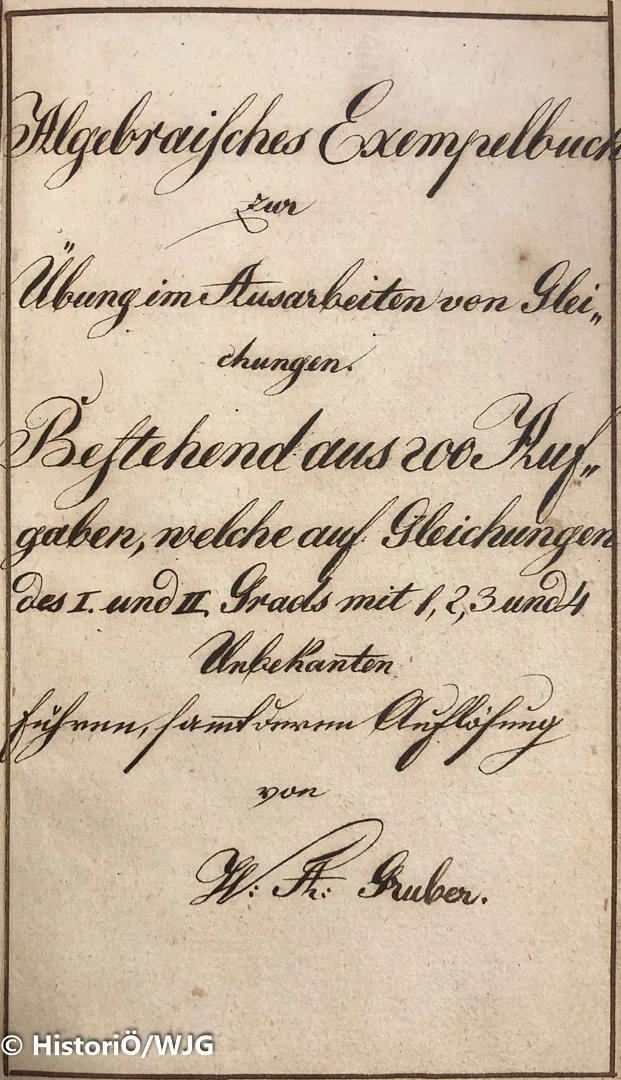 Algebraisches Exempelbuch
zur
Übung im Ausarbeiten von Glei„
chungen.
Bestehend aus 200 Auf„
gaben, welche auf Gleichungen
des I. und II. Grads mit 1, 2, 3 und 4
Unbekanten
führen, samt deren Auflösung
von
W: A: Gruber.
© HistoriÖ/WJG